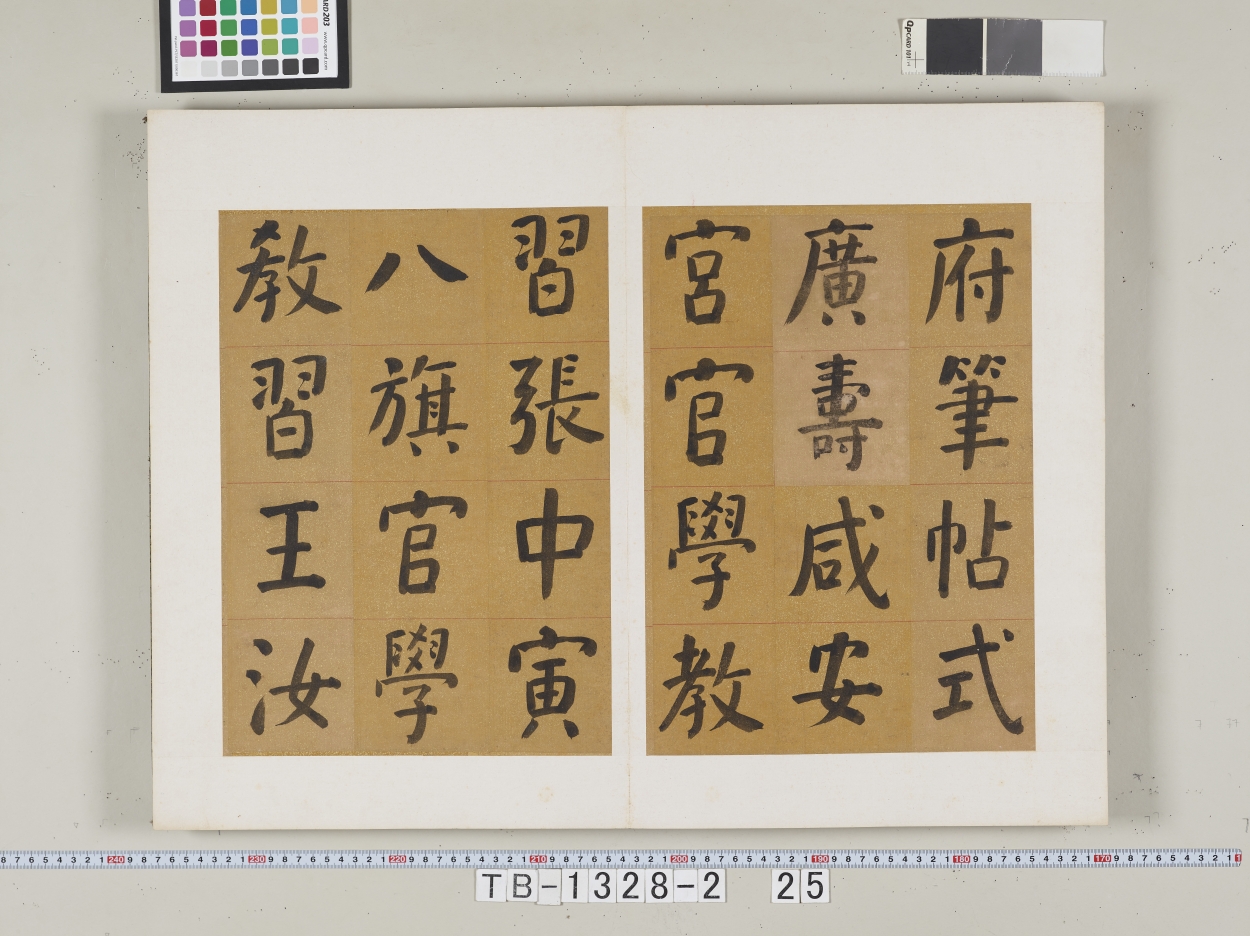 府筆帖式
廣壽咸安
宮官學教
習張中寅
八旗官學
教習王汝
TB-1328-2 25